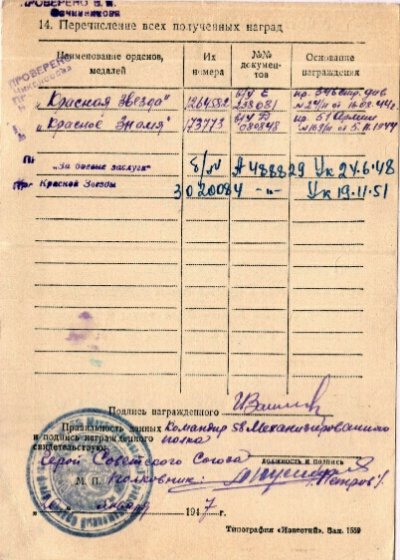 ПРОВЕРЕНО
Овчинникова
14. Перечисление всех полученных наград
Наименование орденов, медалей
Их номера
№№ документов
Основание награждения
ПРОВЕРЕНО
"Красная Звезда" 1264582 б/у Е 238081 пр. 346 стр. див. №24/н от 16.08.44г.
"Красное Знамя" 173773 б/у Д 080848 пр. 51 Армии №163/н от 5.11.1944
"За боевые заслуги" б/н А 488829 Ук 24.6.48
Красной Звезды 3020084 -"- Ук 19.11.51
Подпись награжденного
Правильность данных Командир 58 Механизированного
и подпись награжденного полка
свидетельствую:
Герой Советского Союза
должность и подпись
М. П. Полковник: /Петров/
январ 1947 г.
Типография «Известий». Зак. 1559